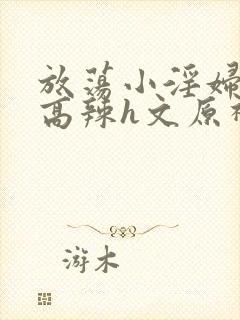 放荡小淫婦
高辣h文原
游木